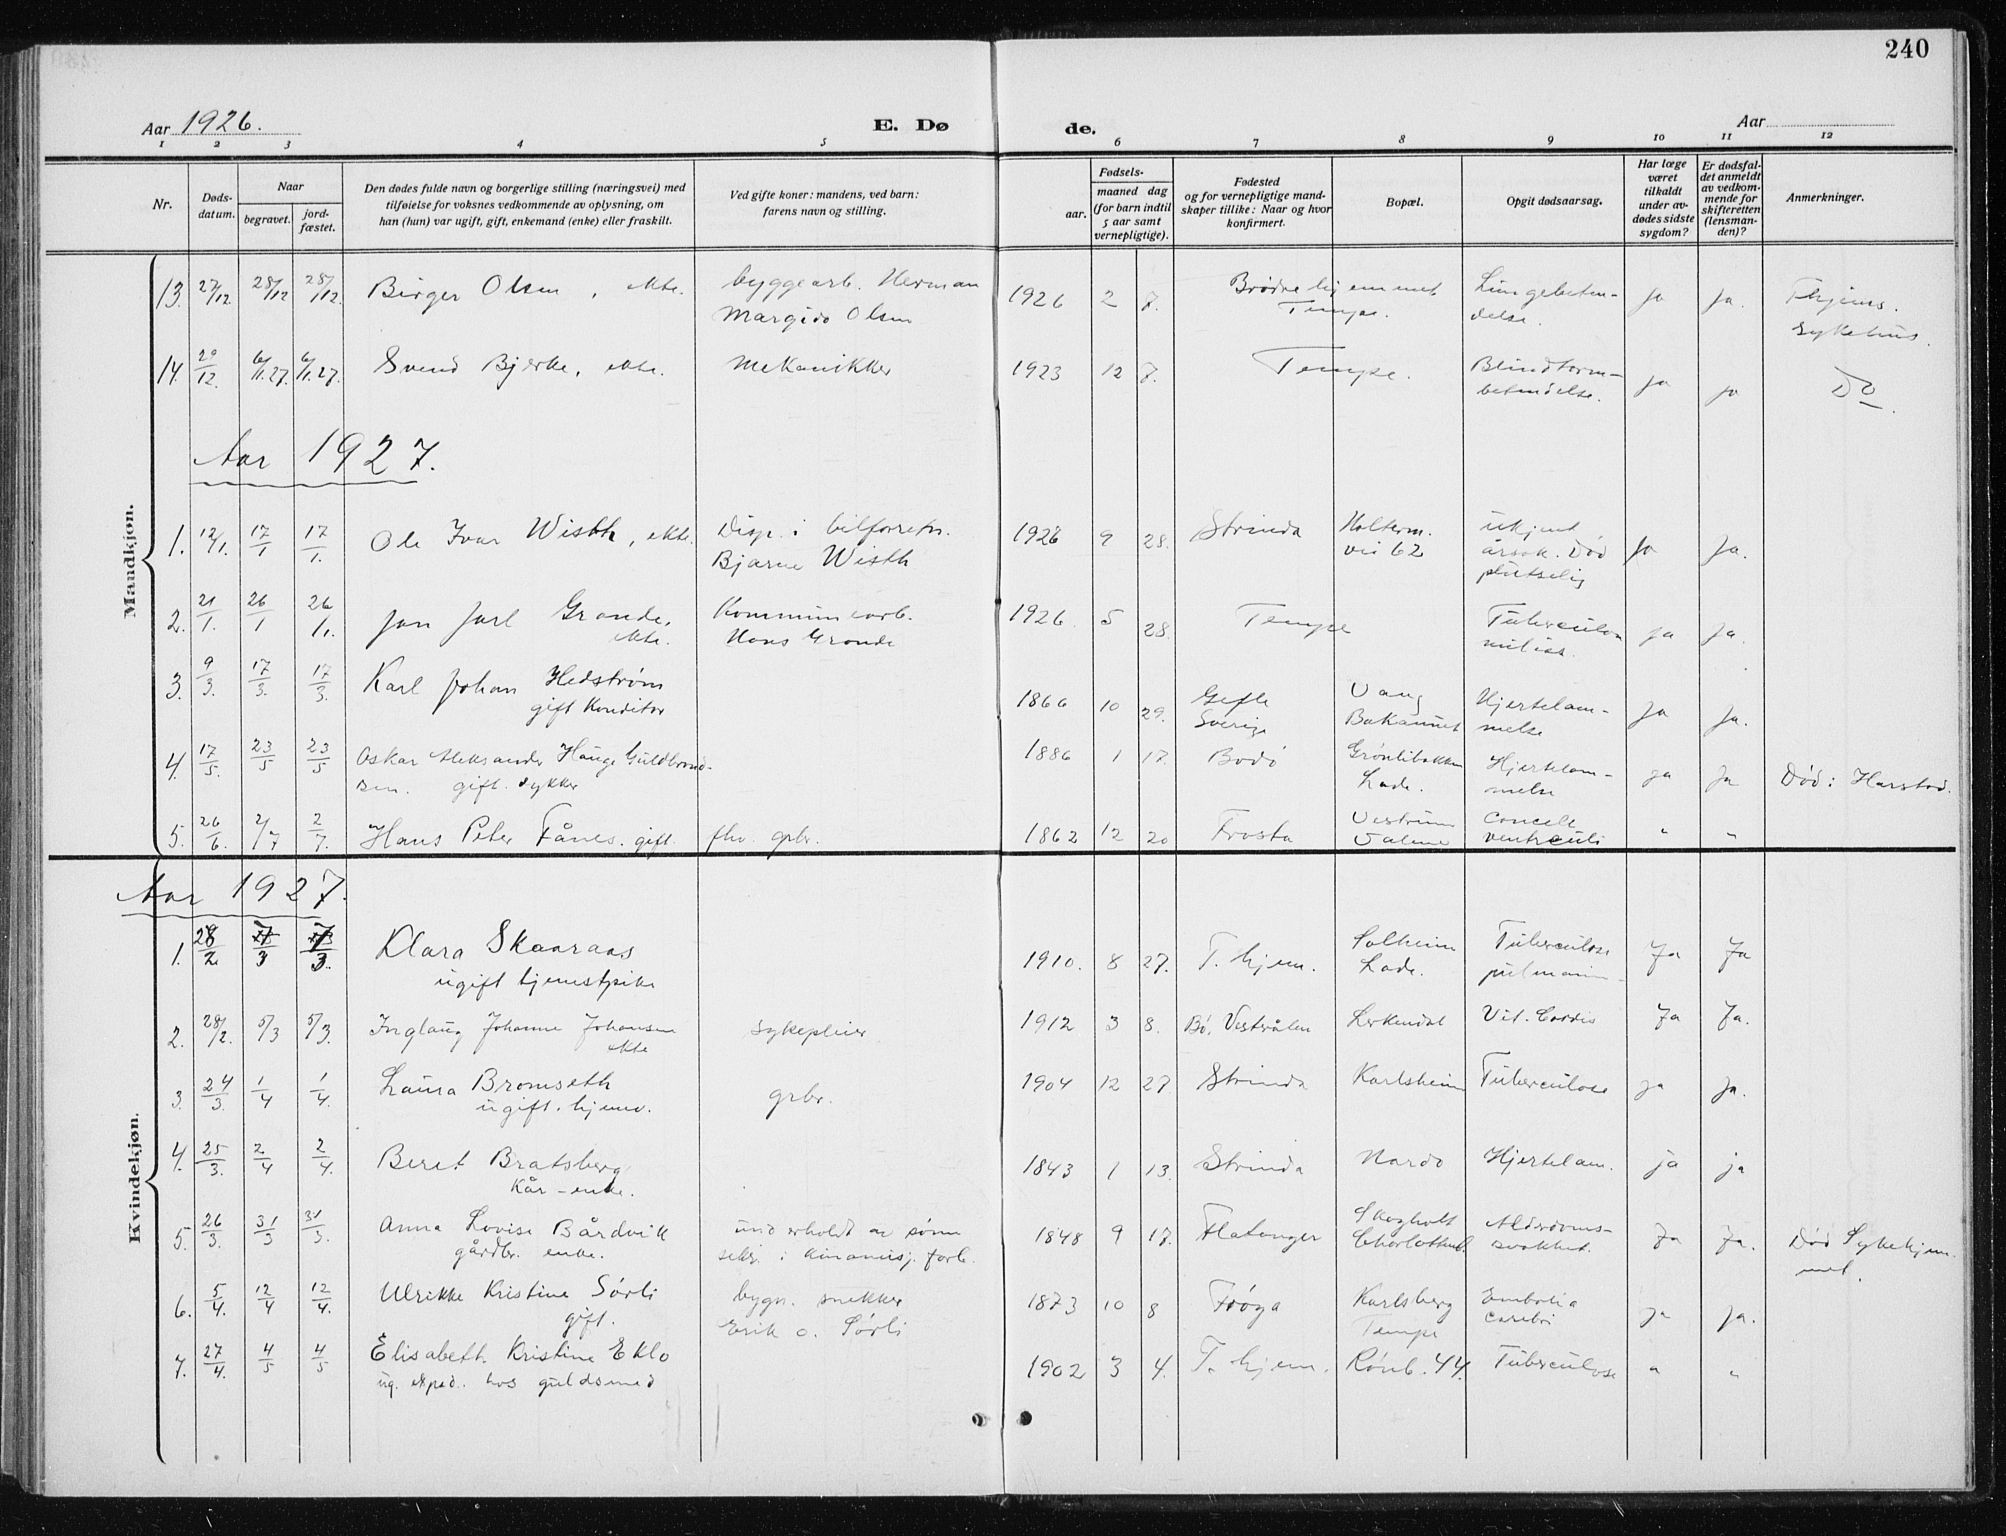 240
Aar 1926. E. Dø de. Aar
1 2 3 4 5 6 7 8 9 10 11 12
Nr. Døds-datum. Naar begravet. jord-fæstet. Den dødes fulde navn og borgerlige stilling (næringsvei) med tilføielse for voksnes vedkommende av oplysning, om han (hun) var ugift, gift, enkemand (enke) eller fraskilt. Ved gifte koner: mandens, ved barn: farens navn og stilling. Fødsels- aar. maaned dag (for barn indtil 5 aar samt vernepligtige). Fødested og for vernepligtige mand-skaper tillike: Naar og hvor konfirmert. Bopæl. Opgit dødsaarsag. Har læge været tilkaldt under av-dødes sidste sygdom? Er dødsfal-det anmeldt av vedkom-mende for skifteretten (lensman-den)? Anmerkninger.
Mandkjøn.
13. 27/12 28/12 28/12. Birger Olsen, ekte. byggearb. Herman 1926 2 7. Brødrehjemmet Lungebeten- Ja Ja. Thjems.
Margido Olsen Tempe. delse. sykehus.
14. 29/12. 6/1.27. 6/1.27. Svend Bjerke, ekte. Mekanikker 1923 12 7. Tempe. Blindtarm- ja ja Do.
betendelse.
Aar 1927.
1. 12/1. 17/1 17/1. Ole Ivar Wisth, ekte. Disp. i bilforretn. 1926 9 28. Strinda Holterm. ukjent Ja Ja.
Bjarne Wisth vei 62 årsak. Død
plutselig
2. 21/1. 26/1 26/1. Jan Jarl Grande, Kommunearb. 1926. 5 28. Tempe Tuberculose ja Ja.
ekte. Hans Grande miliær.
3. 9/3. 17/3. 17/3. Karl Johan Hedstrøm 1866 10 29. Gefle Vang Hjertelam- Ja Ja.
gift Konditor Sverige Bakaunet melse
4. 17/5. 23/5 23/5 Oskar Aleksander Hauge Guldbrand- 1886 1 17. Bodö Grønlibakken Hjertelam- ja Ja Død i Harstad.
sen. gift. dykker Lade. melse
5. 26/6. 2/7 2/7. Hans Peter Fånes. gift. fhv. grbr. 1862 12 20 Frosta ventriculi " "
Kvindekjøn.
Aar 1927.
1. 28/2 7/3 7/3. Klara Skaaraas 1910. 8 27. T. hjem. Solheim Tuberculose Ja Ja
ugift hjemstpike Lade.
2. 28/2. 5/3 5/3. Inglaug Johanne Johansen sykepleier 1912 3 8. Bö, Vesterålen Lerkendal Vit. Cordis Ja Ja.
ekte
3. 24/3. 1/4 1/4. Laura Bromseth grbr. 1904 12 27 Strinda Karlsheim Tuberculose ja Ja.
ugift. hjemv.
4. 25/3. 2/4 2/4. Beret Bratsberg 1843 1 13. Strinda Nardo Hjertelam. ja ja
Kår-enke.
5. 26/3. 31/3 31/3. Anna Lovise Bårdvik und erholdt av sönn 1848 9 17. Flatanger Skogholt Alderdoms- Ja Ja. Död Sykehjem-
gårdbr. enke. sekr. i Kinamisj. forb. Charlottenl. svakhet. met.
6. 5/4. 12/4 12/4. Ulrikke Kristine Sörli bygn. snekker 1873 10 8 Fröya Karlsberg Embolia ja Ja.
gift. Erik O. Sörli Tempe cerebri
7. 27/4. 4/5 4/5 Elisabeth Kristine Eklo 1902 3 4. T. hjem. Rönb. 44. Tuberculose " "
ug. eksped. hos guldsmed